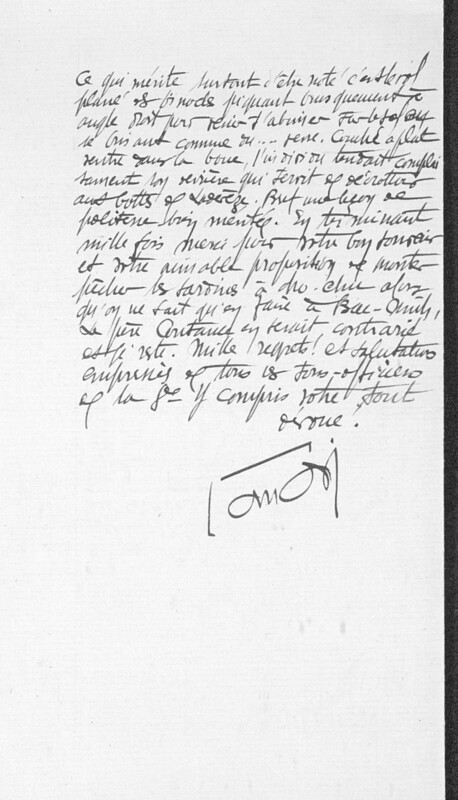 Ce qui mérite surtout d'être noté c'est le vol
plané de binocle piquant brusquement à
angle droit pour venir s'abimer sur le sol
se brisant comme du ... verre. Couché à plat
ventre dans la boue, l'individu tendait complai
samment son derrière qui servit de décrottoir
aux bottes de Bref une leçon de
politesse bien méritée. En terminant
mille fois merci pour votre bon souvenir
et votre aimable proposition de
pêcher les sardines à alors
qu'on ne sait qu'en faire à Bac-Ninh,
Le père en serait contrarié
et je reste. Mille regrets! et salutations
empressées de tous les sous-officiers
de la Gde y compris votre tout
dévoué.